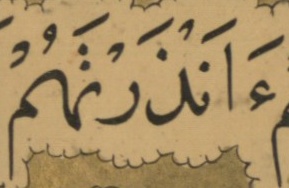 ءَاَنْذَرْتَهُمْ